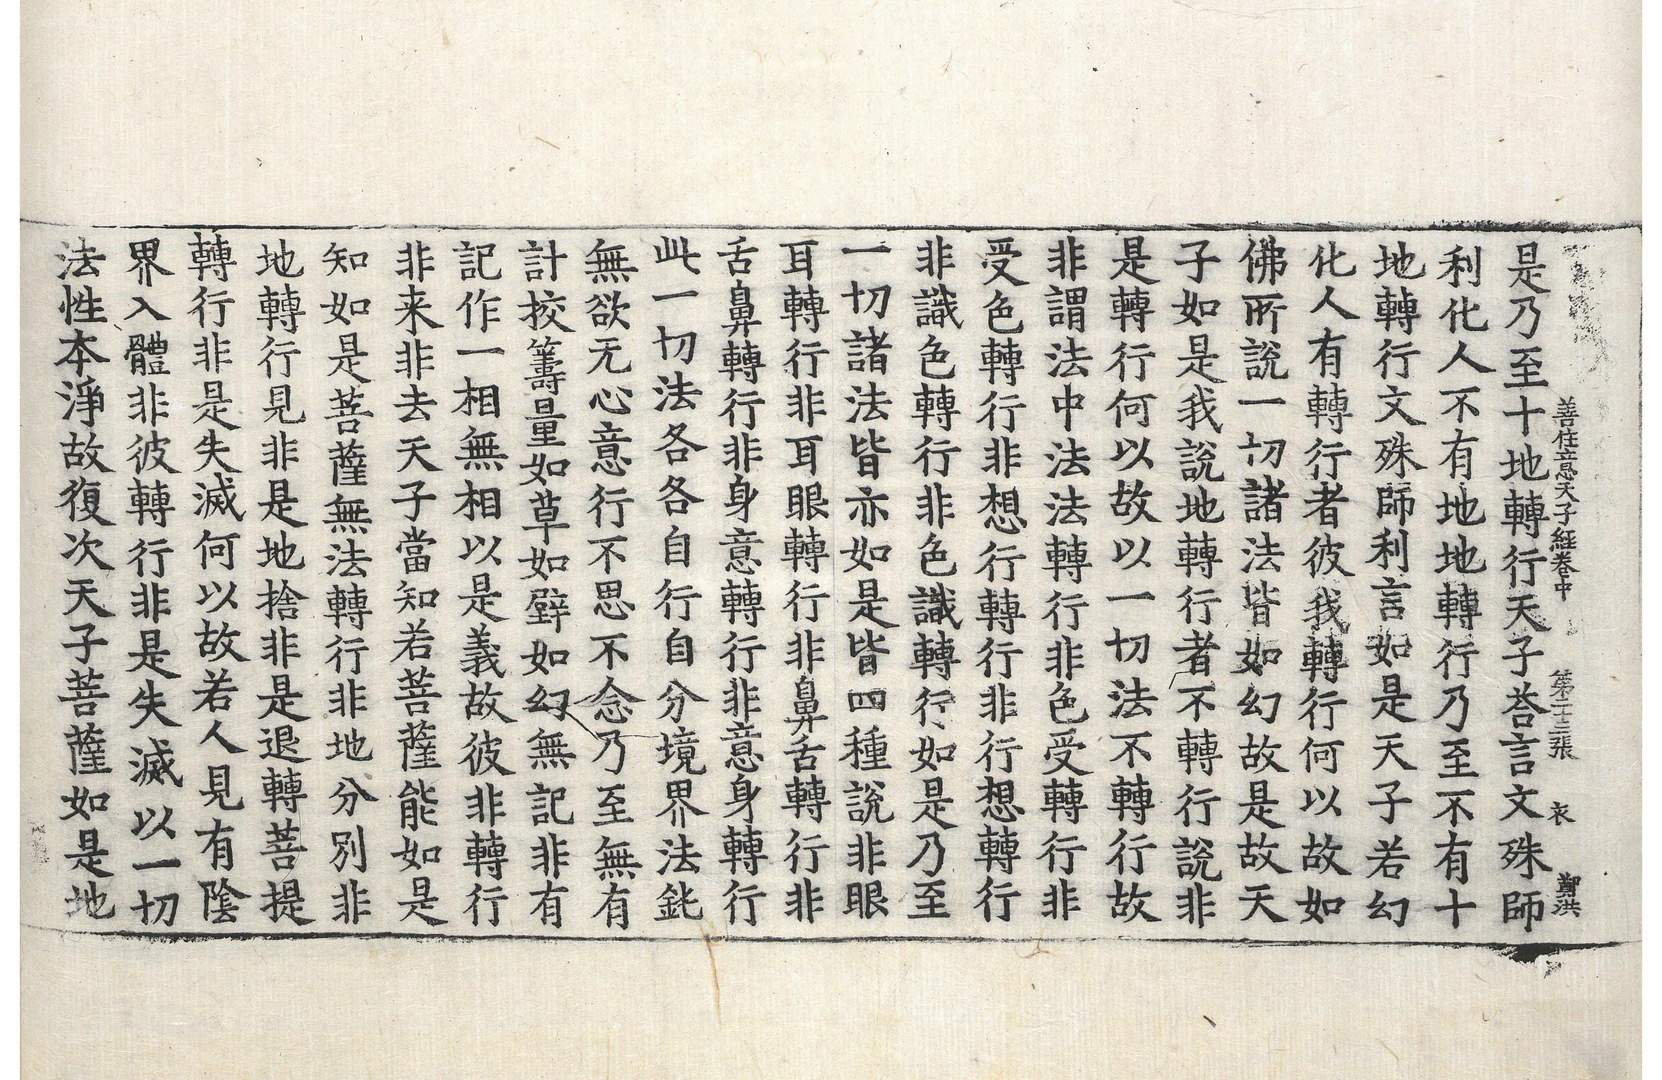 善住意天子經卷中 第二十三張 衣
是乃至十地轉行天子荅言文殊師
利化人不有地地轉行乃至不有十
地轉行文殊師利言如是天子若幻
化人有轉行者彼我轉行何以故如
佛所說一切諸法皆如幻故是故天
子如是我說地轉行者不轉行說非
是轉行何以故以一切法不轉行故
非謂法中法法轉行非色受轉行非
受色轉行非想行轉行非行想轉行
非識色轉行非色識轉行如是乃至
一切諸法皆亦如是皆四種說非眼
耳轉行非耳眼轉行非鼻舌轉行非
舌鼻轉行非身意轉行非意身轉行
此一切法各各自行自分境界法鈍
無欲无心意行不思不念乃至無有
計挍籌量如草如壁如幻無記非有
記作一相無相以是義故彼非轉行
非来非去天子當知若菩薩能如是
知如是菩薩無法轉行非地分別非
地轉行見非是地捨非是退轉菩提
轉行非是失滅何以故若人見有陰
界入體非彼轉行非是失滅以一切
法性本淨故復次天子菩薩如是地